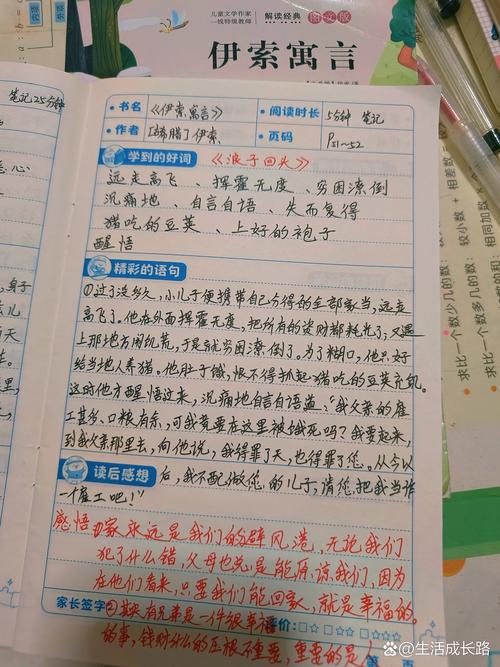 儿童文学作家
一线特级教师
解读经典
图文版
伊索寓言
笔记25分钟
书名 《伊索寓言》
阅读时长 5分钟 笔记
作者 [希腊]伊索
页码 P51~52
学到的好词 《浪子回头》
远走高飞、挥霍无度、穷困潦倒
沉痛地、自言自语、失而复得
猪吃的豆荚、上好的袍子
醒悟
精彩的语句
①过了没多久,小儿子便携带自己分得的全部家当,远走
高飞了。他在外面挥霍无度,把所有的资财都耗光了,又遇
上那地方闹饥荒,于是就穷困潦倒了。为了糊口,他只好
给当地人养猪。他肚子饿,恨不得抓起猪吃的豆荚充饥。
这时他方醒悟过来,沉痛地自言自语道:“我父亲的雇
工甚多,口粮有余,可我竟要在这里被饿死吗?我要起来,
到我父亲那里去,向他说,我得罪了天,也得罪了您。从今以
读后感想 后,我不配做您的儿子,请您把我当作
一个雇工吧!”
感悟 ①家永远是我们的避风港,无论我们
犯了什么错,父母也总是能原谅我们,因为
在他们看来,只要我们能回家,就是幸福的。
家长签字 ②其实有兄弟是一件很幸福
评价:
的事,钱财什么的压根不重要,重要的是人
求比一个数多几的数:较小数+相差数=
求比一个数少几的数:较大数
头条 @生活成长路